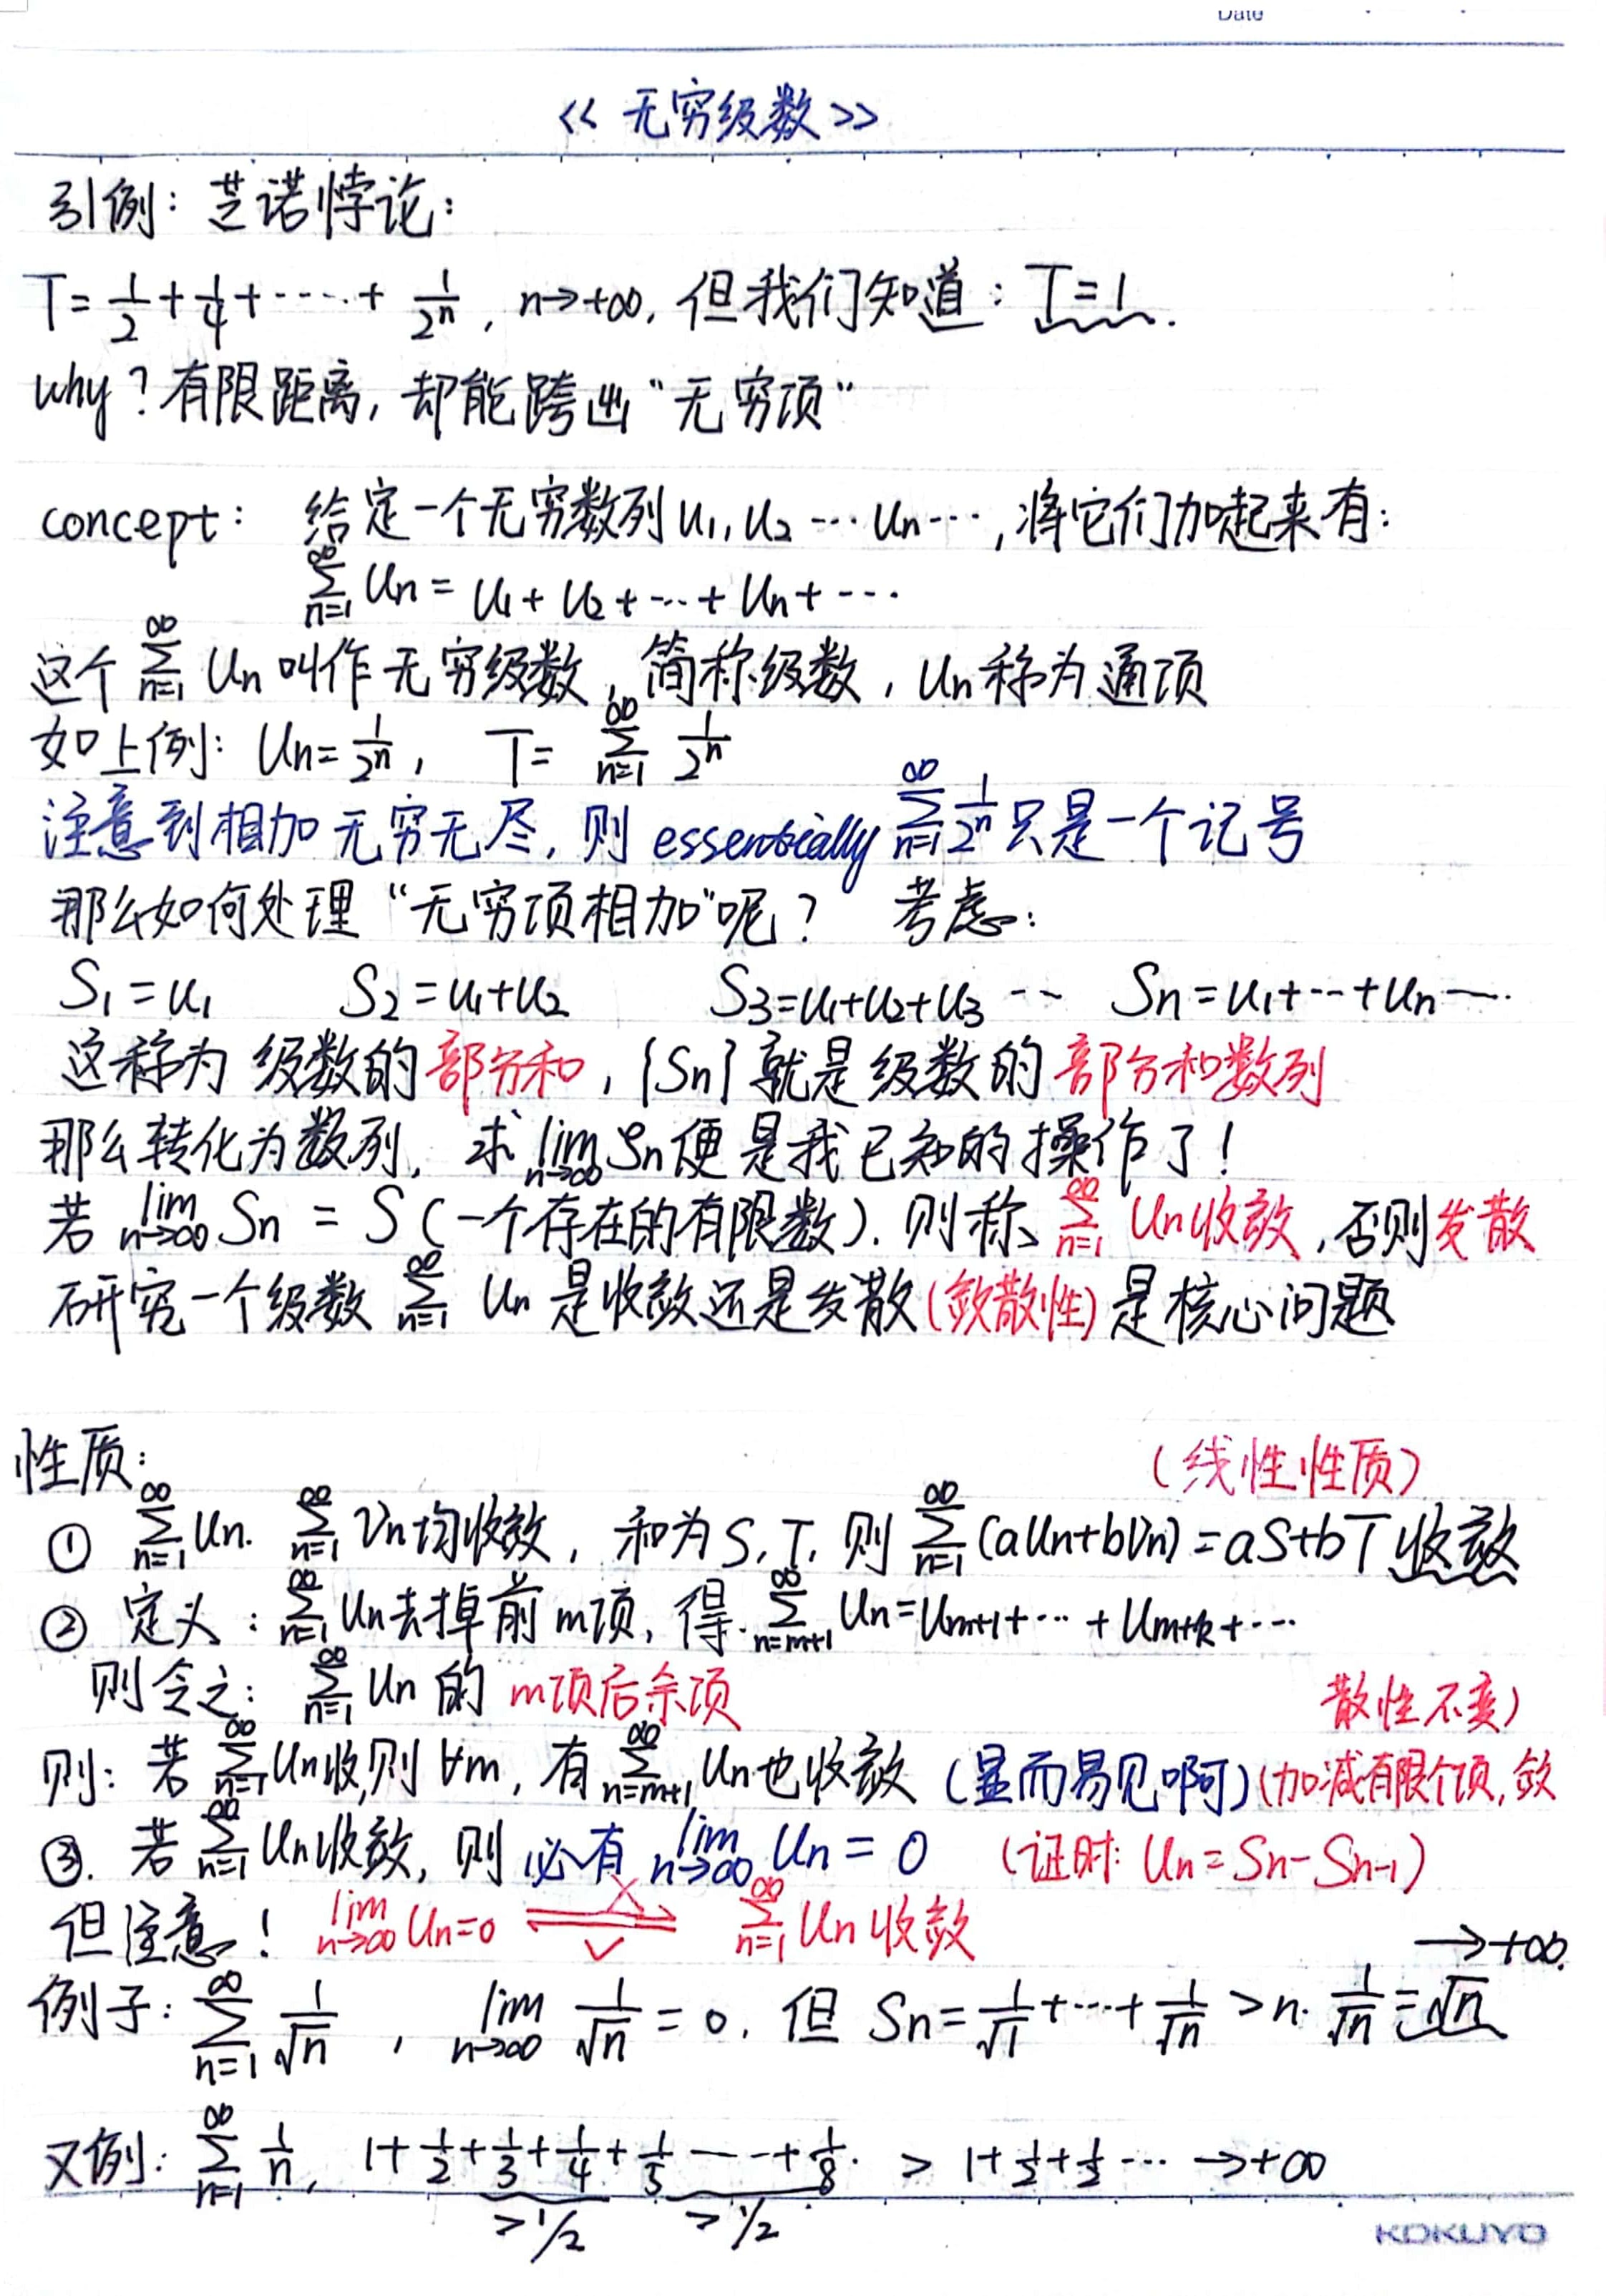 Date
<< 无穷级数 >>
引例：芝诺悖论：
T = 1/2 + 1/4 + ····· + 1/2ⁿ , n→+∞, 但我们知道：T=1.
why？有限距离, 却能跨出“无穷项”
concept： 给定一个无穷数列 u₁, u₂ ··· uₙ ···, 将它们加起来有：
∑_{n=1}^{∞} uₙ = u₁ + u₂ + ··· + uₙ + ···
这个 ∑_{n=1}^{∞} uₙ 叫作无穷级数，简称级数，uₙ 称为通项
如上例：uₙ = 1/2ⁿ， T = ∑_{n=1}^{∞} 1/2ⁿ
注意到相加无穷无尽, 则 essentically ∑_{n=1}^{∞} 1/2ⁿ 只是一个记号
那么如何处理“无穷项相加”呢？ 考虑：
S₁ = u₁ S₂ = u₁+u₂ S₃ = u₁+u₂+u₃ ··· Sₙ = u₁+···+uₙ ···.
这称为级数的部分和，{Sₙ} 就是级数的部分和数列
那么转化为数列，求 lim_{n→∞} Sₙ 便是我已知的操作了！
若 lim_{n→∞} Sₙ = S (一个存在的有限数). 则称 ∑_{n=1}^{∞} uₙ 收敛，否则发散
研究一个级数 ∑_{n=1}^{∞} uₙ 是收敛还是发散(敛散性) 是核心问题
性质： (线性性质)
① ∑_{n=1}^{∞} uₙ. ∑_{n=1}^{∞} vₙ 均收敛，和为 S, T, 则 ∑_{n=1}^{∞} (auₙ+bvₙ) = aS+bT 收敛
② 定义：∑_{n=1}^{∞} uₙ 去掉前 m 项, 得. ∑_{n=m+1}^{∞} uₙ = u_{m+1} + ··· + u_{m+k} + ···
则令之：∑_{n=1}^{∞} uₙ 的 m项后余项
则：若 ∑_{n=1}^{∞} uₙ 收,则 ∀m, 有 ∑_{n=m+1}^{∞} uₙ 也收敛 (显而易见啊) (加减有限个项, 敛
散性不变)
③. 若 ∑_{n=1}^{∞} uₙ 收敛, 则必有 lim_{n→∞} uₙ = 0 (证时：uₙ = Sₙ - Sₙ₋₁)
但注意！ lim_{n→∞} uₙ=0 ⇌ (× ✓) ∑_{n=1}^{∞} uₙ 收敛
例子：∑_{n=1}^{∞} 1/√n ， lim_{n→∞} 1/√n = 0. 但 Sₙ = 1/√1 + ··· + 1/√n > n · 1/√n = √n →+∞.
又例：∑_{n=1}^{∞} 1/n, 1 + 1/2 + 1/3 + 1/4 + 1/5 ··· + 1/8 . > 1 + 1/2 + 1/2 ··· →+∞
>1/2 >1/2
KOKUYO